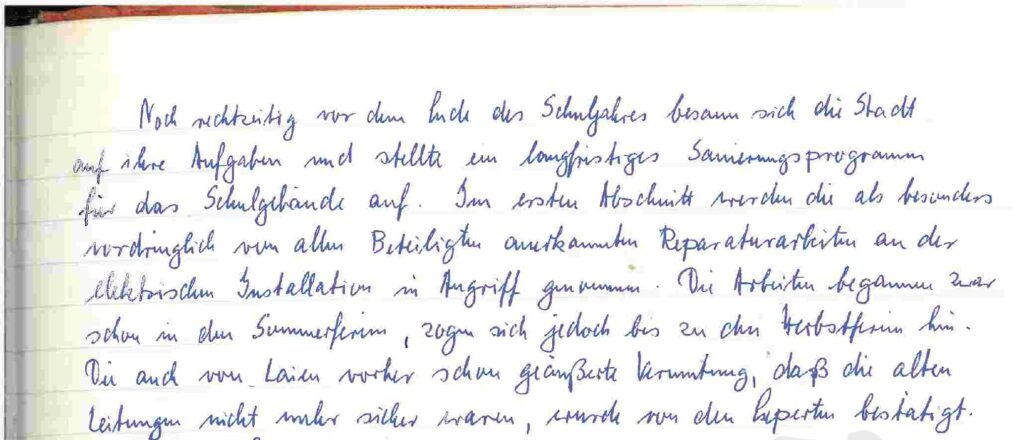 Noch rechtzeitig vor dem Ende des Schuljahres besann sich die Stadt
auf ihre Aufgaben und stellte ein langfristiges Sanierungsprogramm
für das Schulgebäude auf. Im ersten Abschnitt werden die als besonders
vordringlich von allen Beteiligten anerkannten Reparaturarbeiten an der
elektrischen Installation in Angriff genommen. Die Arbeiten begannen zwar
schon in den Sommerferien, zogen sich jedoch bis zu den Herbstferien hin.
Die auch von Laien vorher schon geäußerte Vermutung, daß die alten
Leitungen nicht mehr sicher waren, wurde von den Experten bestätigt.